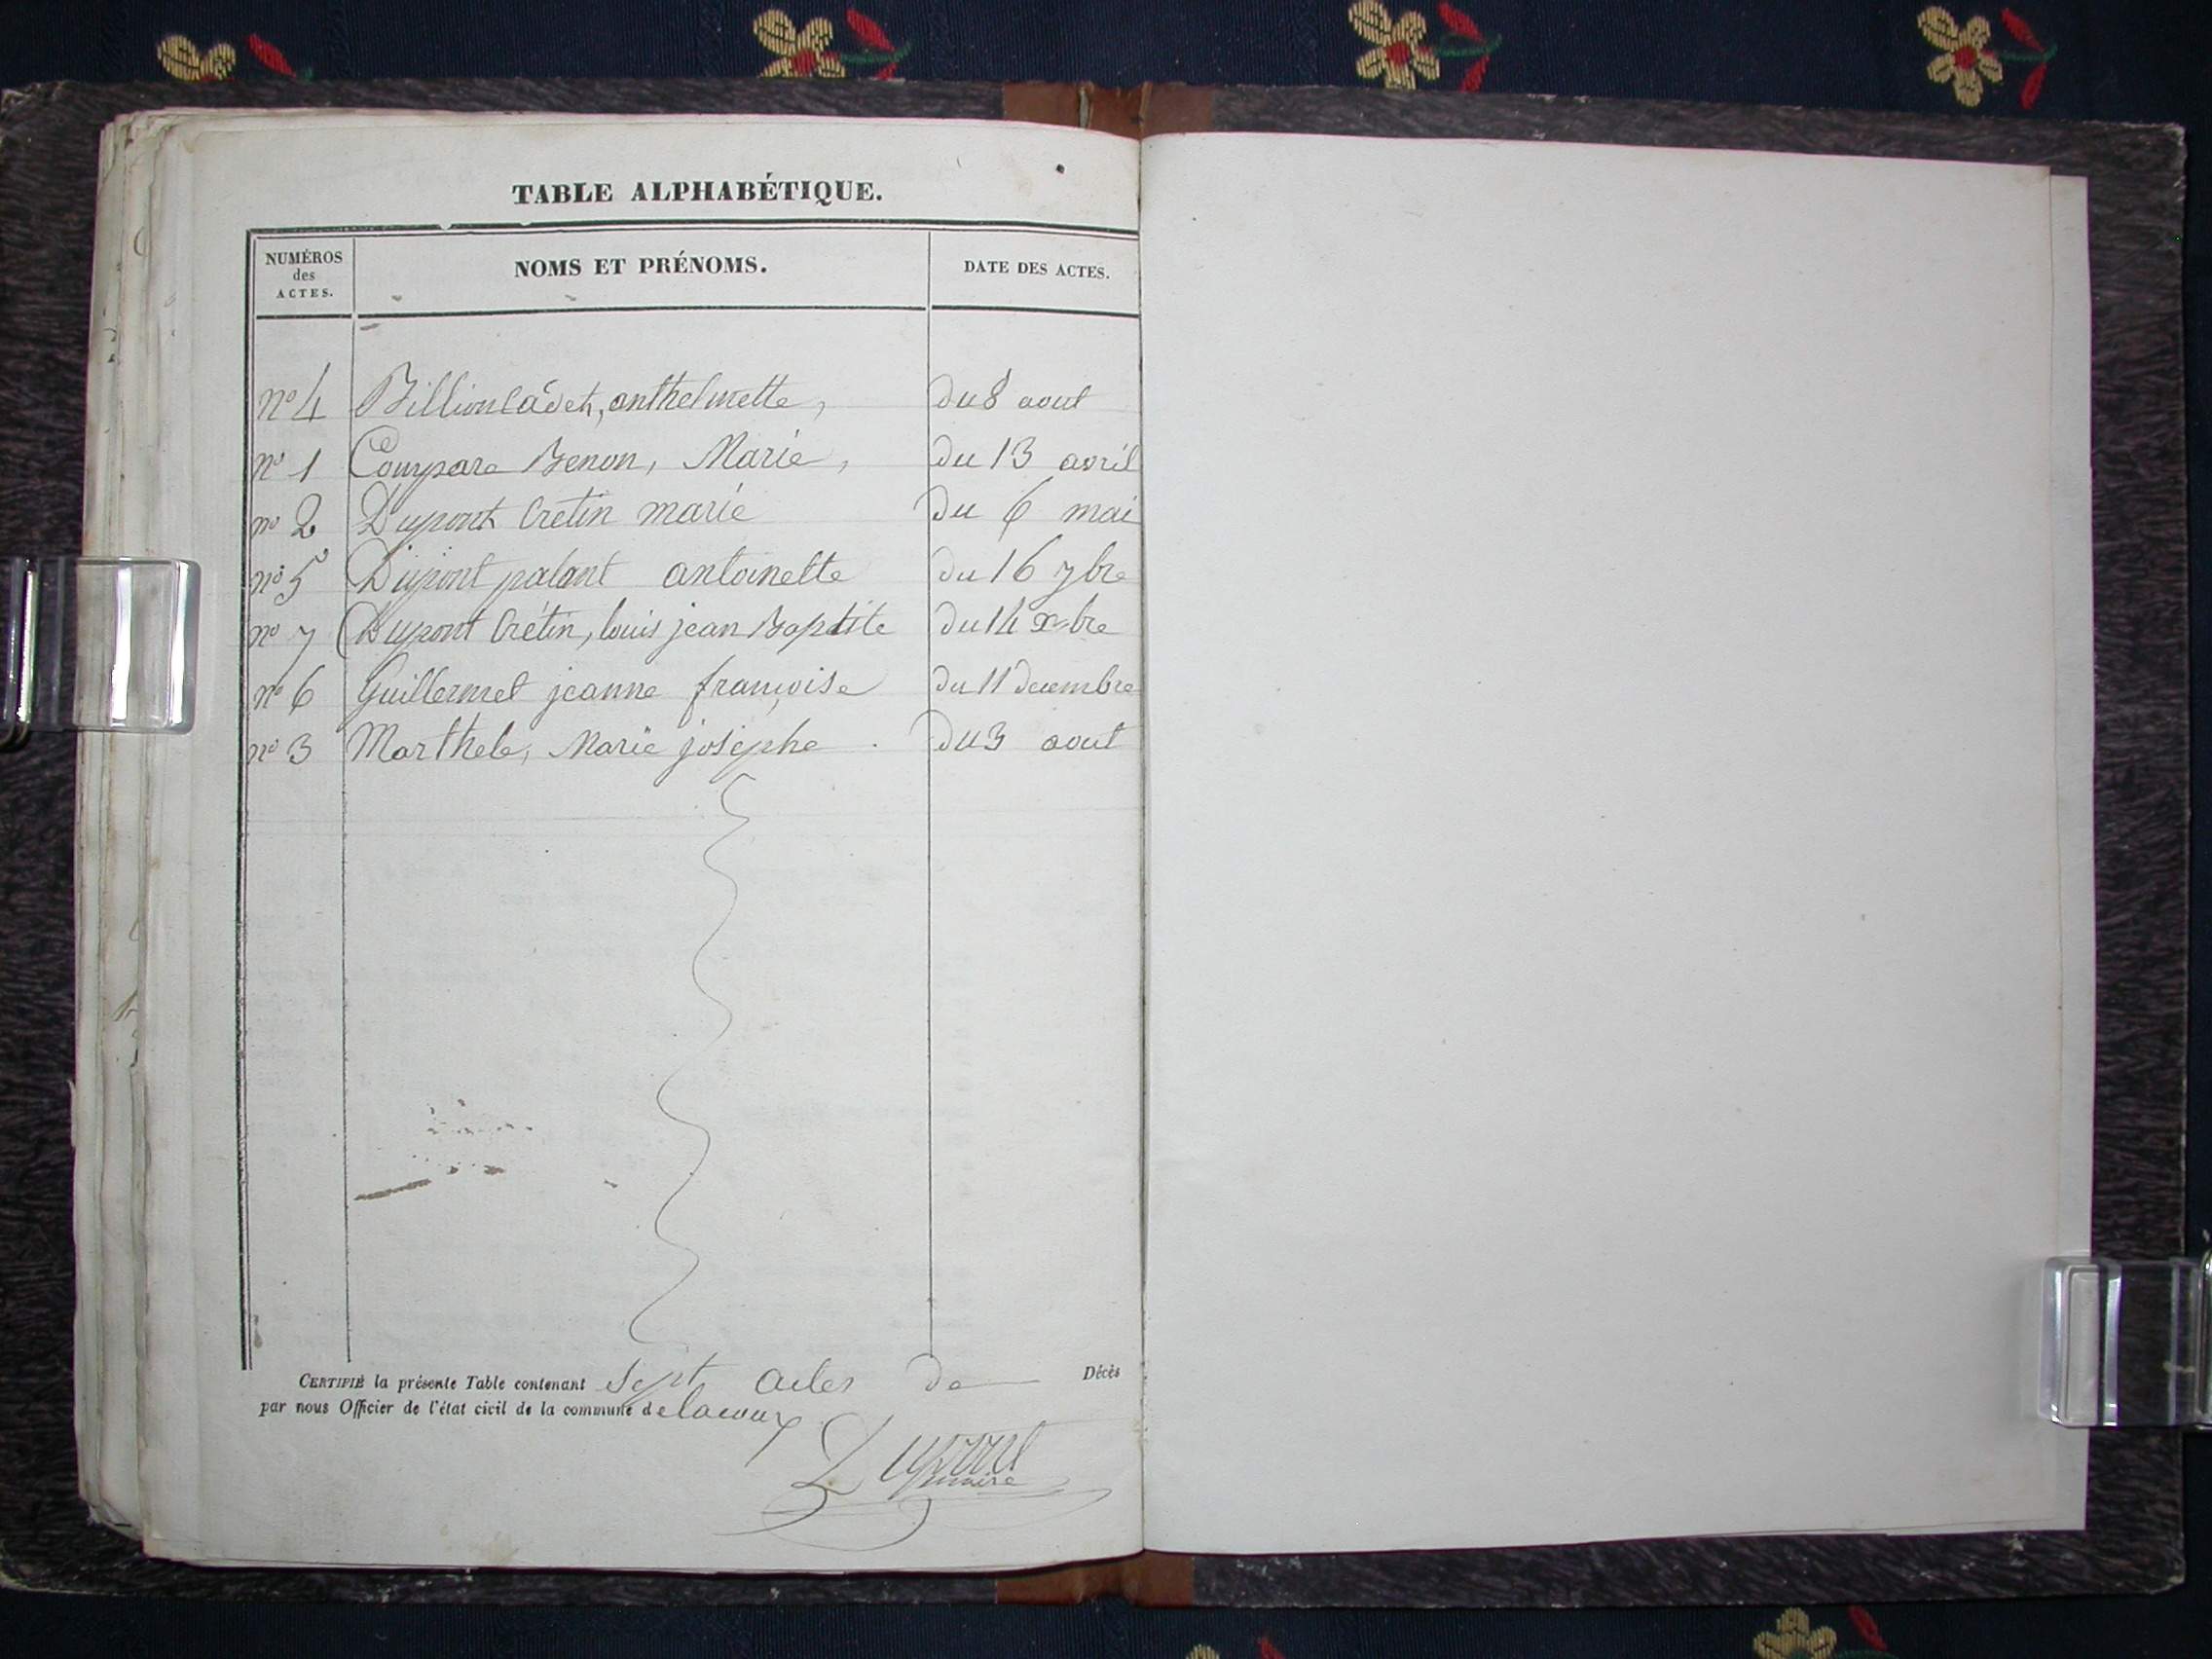 TABLE ALPHABÉTIQUE.
NUMÉROS des ACTES. NOMS ET PRÉNOMS. DATE DES ACTES.
n° 4 Billion Cadet, anthelmette, du 8 aout
n° 1 Compare Benon, Marie, du 13 avril
n° 2 Dupont Cretin marie du 6 mai
n° 5 Dupont palant antoinette du 16 7bre
n° 7 Dupont Crétin, louis jean Baptiste du 14 xbre
n° 6 Guillermet jeanne françoise du 11 decembre
n° 3 Marthele, Marie josephe. du 3 aout
CERTIFIÉ la présente Table contenant sept actes de Décès
par nous Officier de l'état civil de la commune de lacoux
Dupont
maire